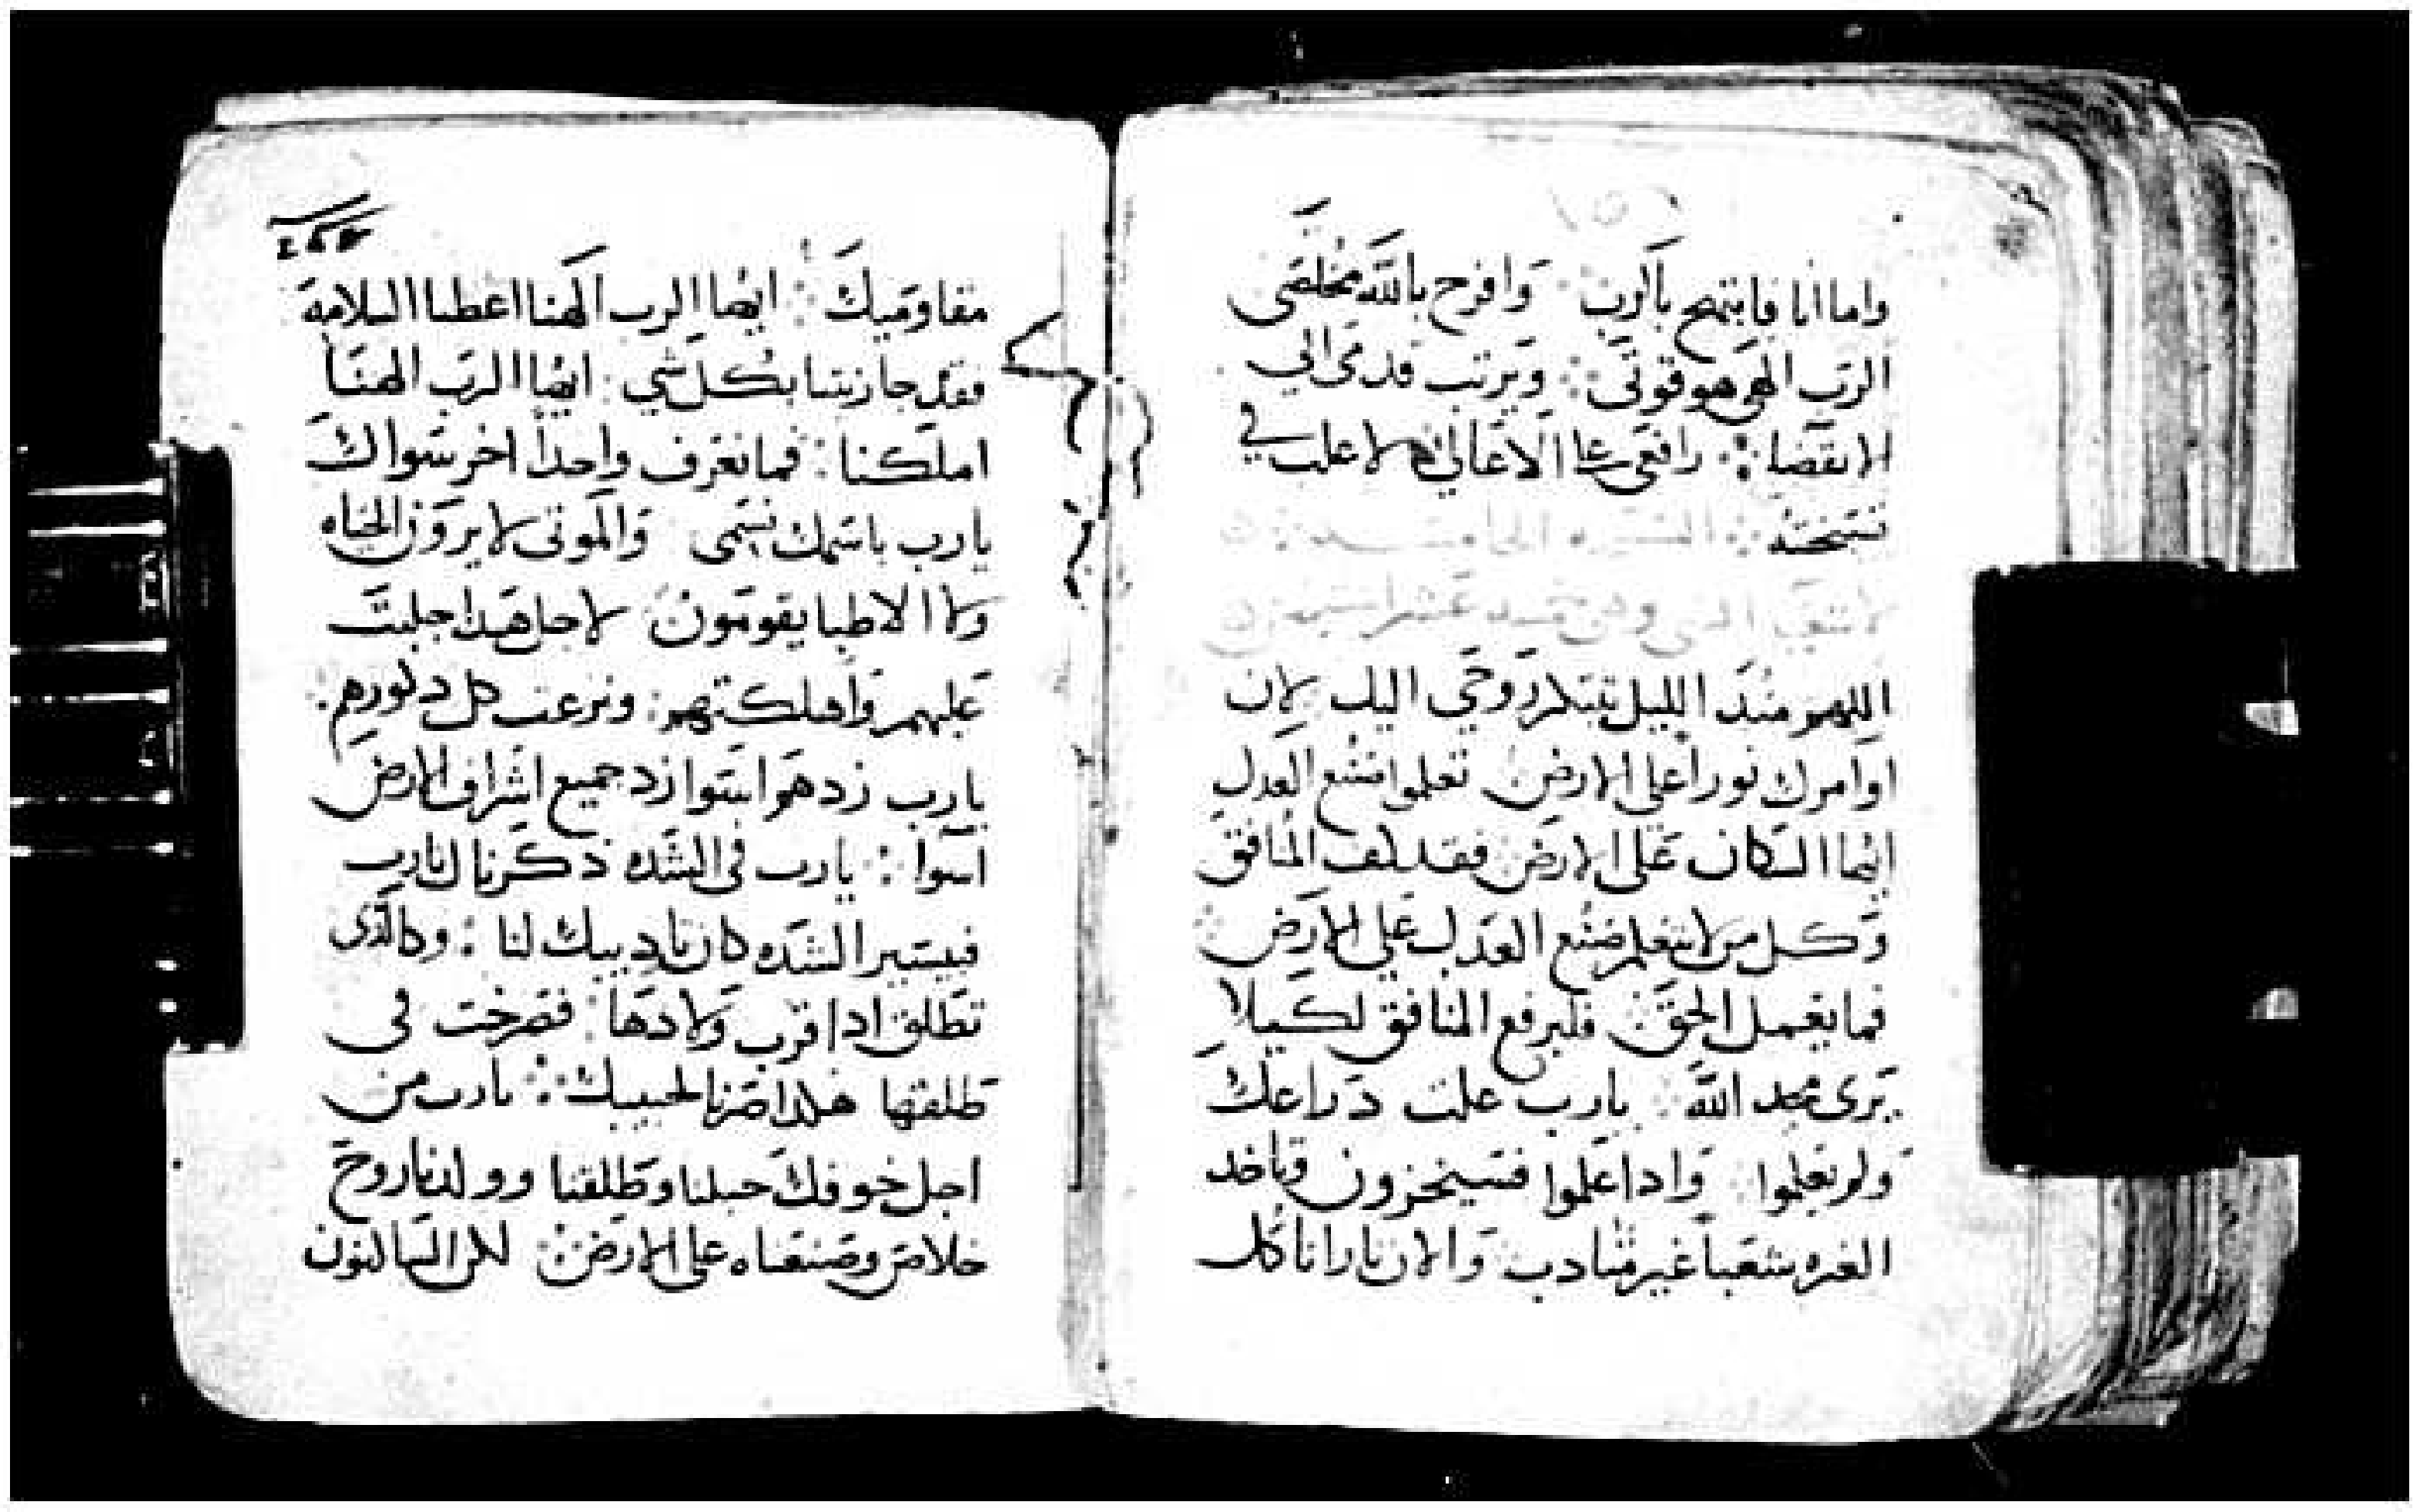 واما انا فابتهج بالرب ∴ وافرح بالله مخلصى
الرب الهى هو قوتى ∴ ويرتب قدمى الي
الانقضا ∴ رافعى على الاعالي لاغلب في
تسبحته ∴ التسبحه الخامسه ∴
لاشعيا النبى
اللهم منذ الليل تبتكر روحي اليك لان
اوامرك نوراً على الارض ∴ تعلموا صنع العدل
ايها السكان على الارض ∴ فقد تلف المنافق
وكل من لا يتعلم صنع العدل على الارض ∴
فما يعمل الحق ∴ فليرفع المنافق لكيلا
يرى مجد الله ∴ يارب علت دراعك
ولم يعلموا ∴ واداعلموا فسيخزون وتاخد
الغيره شعباً غير متادب والان نارا تاكل
مقاوميك ∴ ايها الرب الهنا اعطنا السلامه
فقد جازيتنا بكل شي : ايها الرب الهنا
املكنا ∴ فما نعرف واحداً اخر سواك
يارب باسمك نسمى والموتى لا يرون الحياه
ولا الاطبا يقومون لاجل هدا جلبت
عليهم واهلكتهم ∴ ونزعت كل دكورهم ∴
يارب زدهم اسوا زد جميع اشراف الارض
اسوا ∴ يارب فى الشده ذكرناك يارب
فبيسير الشده كان تاديبك لنا ∴ وكالذى
تطلق ادا قرب ولادها ∴ فصرخت فى
طلقتها هكدا صرنا لحبيبك ∴ يارب من
اجل خوفك حبلنا وطلقنا وولدنا روح
خلاص وصنعناه على الارض ∴ لكن السالنون